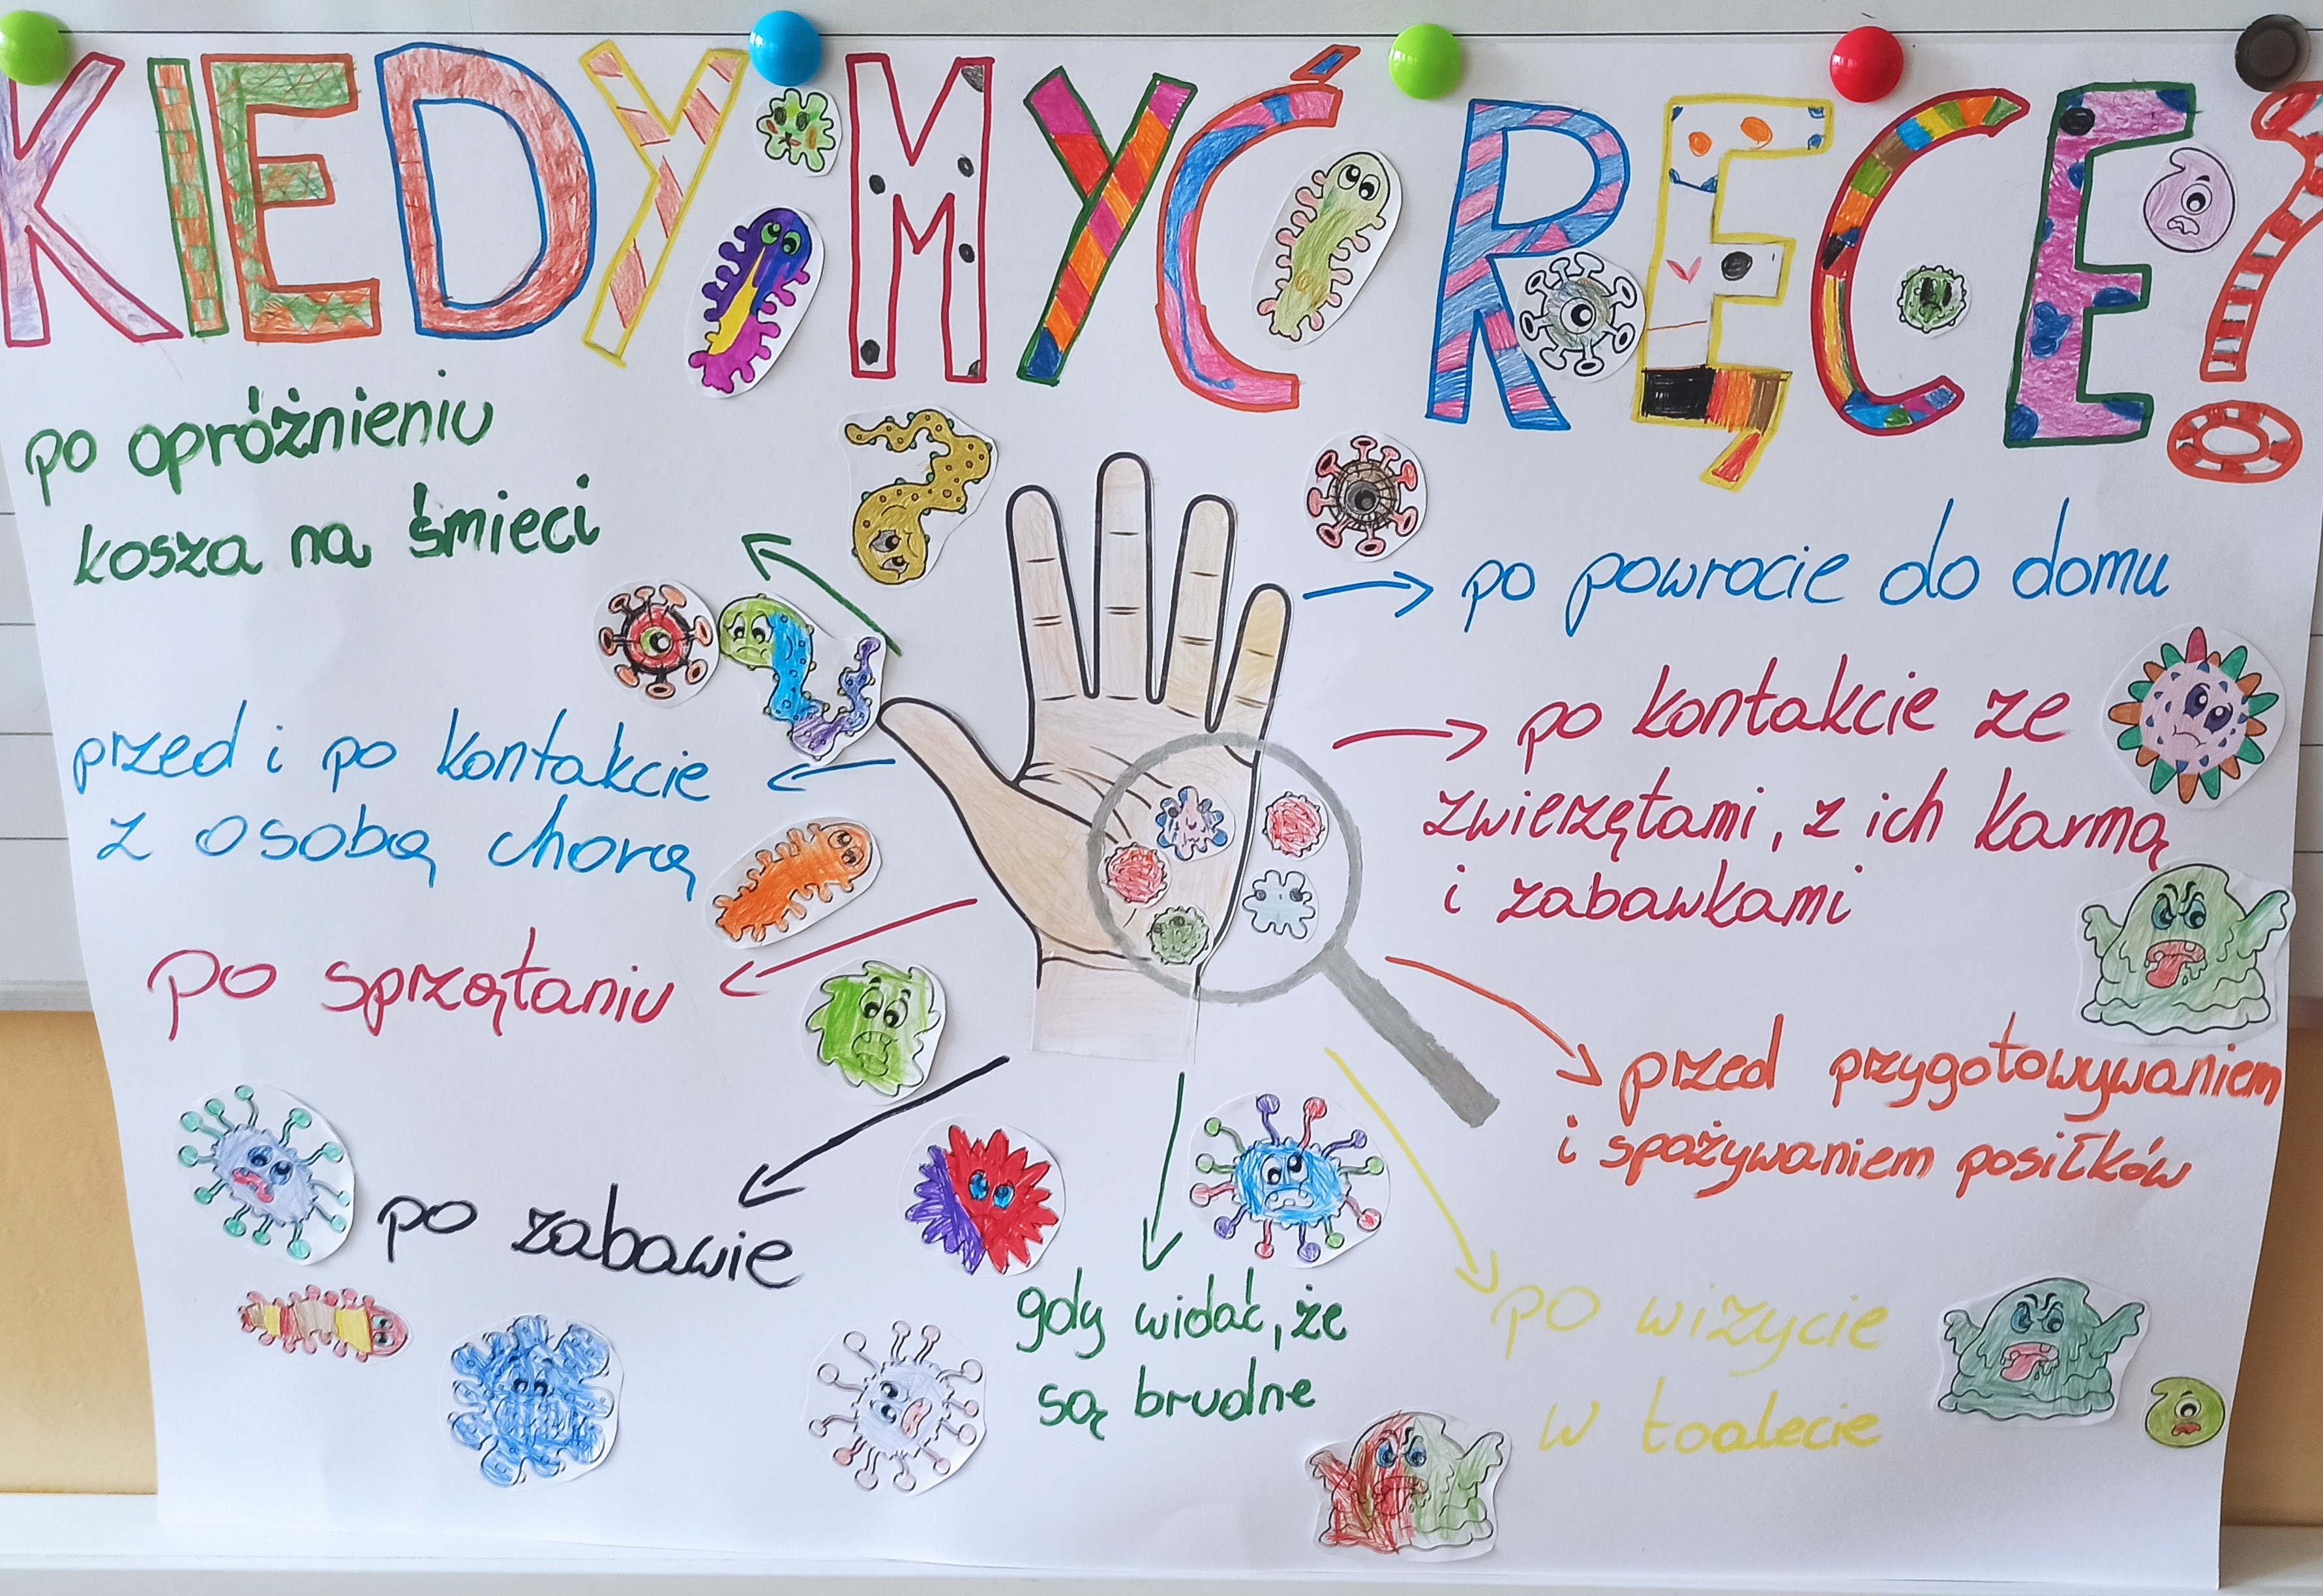 KIEDY MYĆ RĘCE?
po opróżnieniu
kosza na śmieci
przed i po kontakcie
z osobą chorą
po sprzątaniu
po zabawie
gdy widać, że
są brudne
po powrocie do domu
po kontakcie ze
zwierzętami, z ich karmą
i zabawkami
przed przygotowywaniem
i spożywaniem posiłków
po wizycie
w toalecie